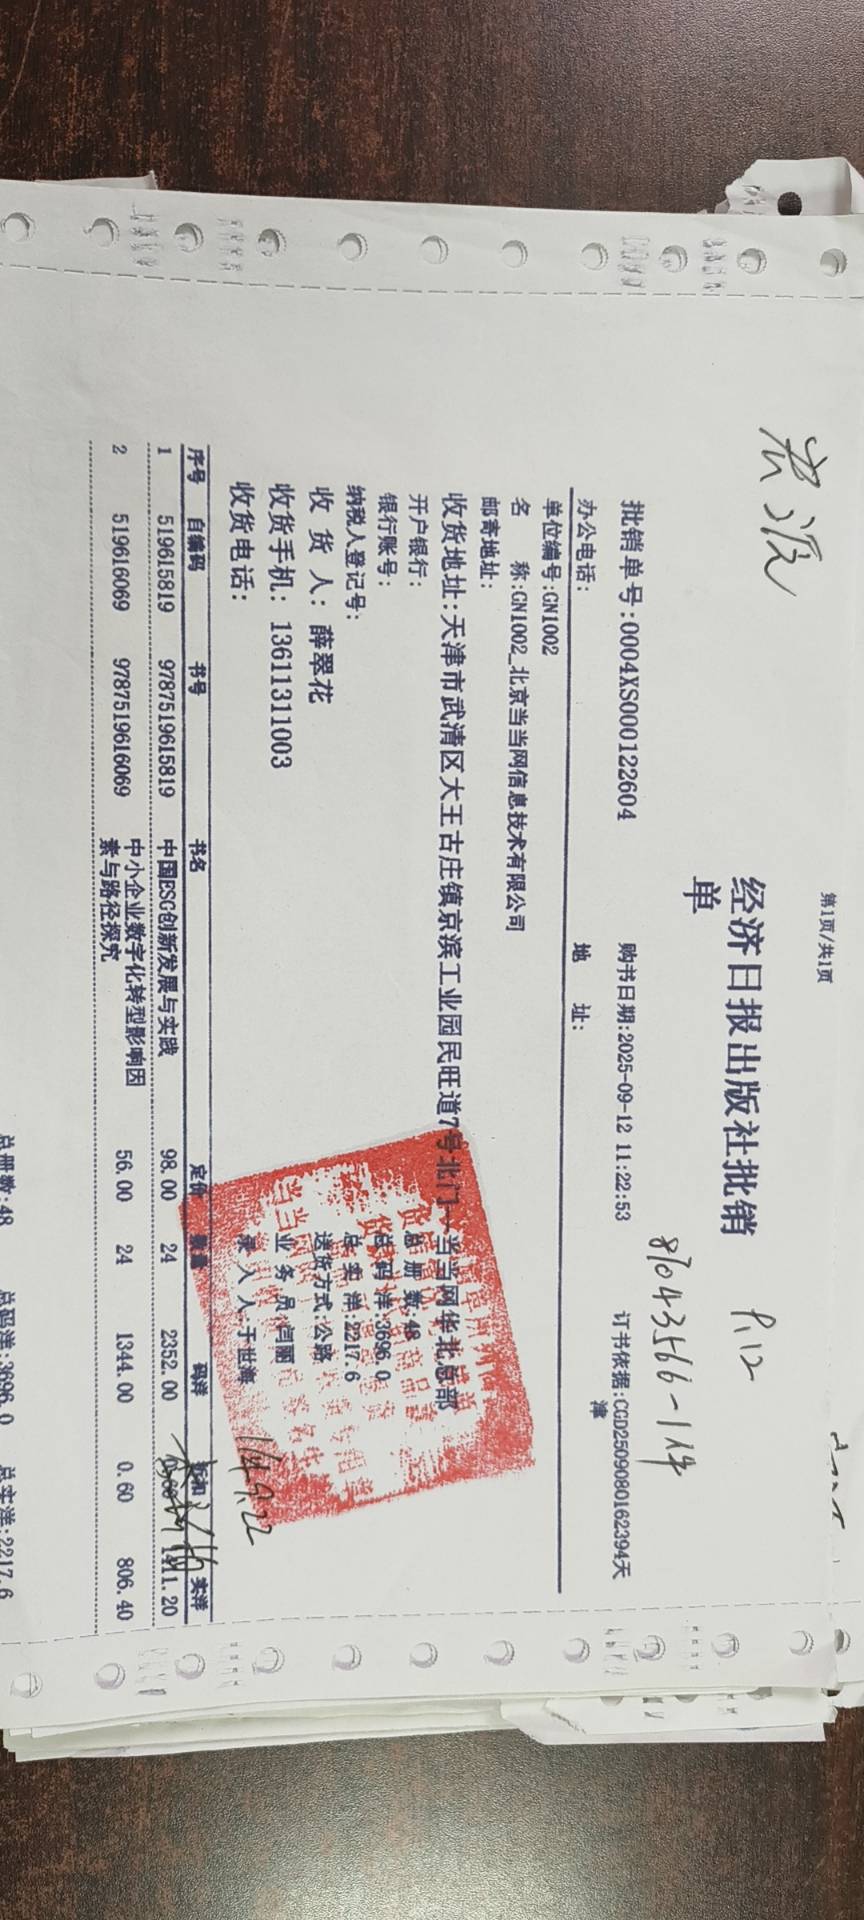 第1页/共1页
经济日报出版社批销
单
P.12
批销单号:0004XS000122604 购书日期:2025-09-12 11:22:53 订书依据:CGD2509080162394天
津
87043566-1件
办公电话: 地 址:
单位编号:GN1002
名 称:GN1002_北京当当网信息技术有限公司
邮寄地址:
收货地址:天津市武清区大王古庄镇京滨工业园民旺道7号北门--当当网华北总部
开户银行: 总册数:48
银行账号: 总码洋:3696.0
纳税人登记号: 总实洋:2217.6
收 货 人: 薛翠花 送货方式:公路
收货手机: 13611311003 业务员:闫丽
收货电话: 录入人:于世海
序号 自编码 书号 书名 定价 数量 码洋 折扣 实洋
1 519615819 9787519615819 中国ESG创新发展与实践 98.00 24 2352.00 1411.20
2 519616069 9787519616069 中小企业数字化转型影响因 56.00 24 1344.00 0.60 806.40
素与路径探究
总册数:48 总码洋:3696.0 总实洋:2217.6